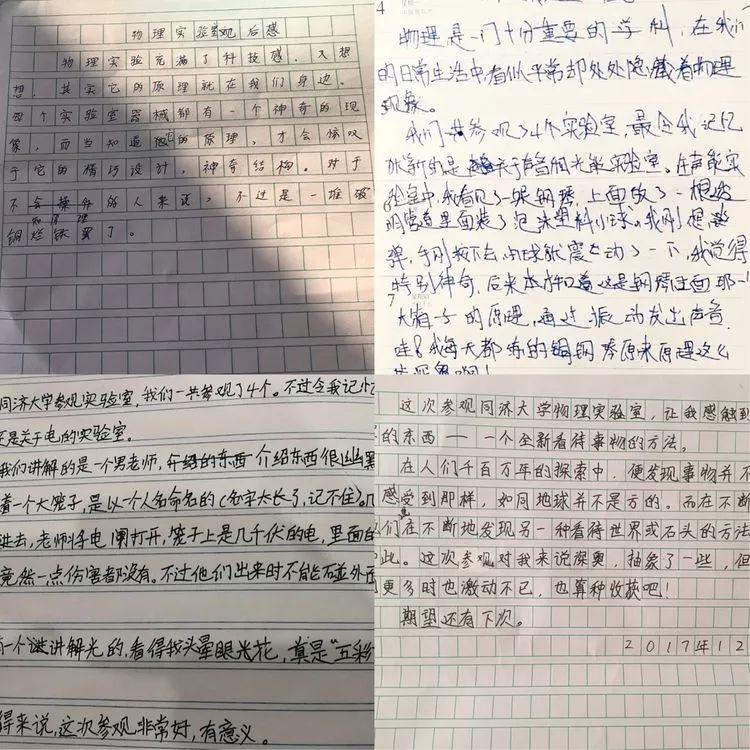 物理实验室观后感
物理实验充满了科技感，又想想，
其实它的原理就在我们身边。
每个实验室器械都有一个神奇的现
象，而当知道它的原理，才会惊叹
于它的精巧设计，神奇结构。对于
不知原理的人来说，不过是一堆破
铜烂铁罢了。
4
物理是一门十分重要的学科，在我们
的日常生活中看似平常却处处隐藏着物理
现象。
我们一共参观了4个实验室，最令我记忆
犹新的是关于声音和光能实验室。在声能实
验室中，我看见了一架钢琴，上面放了一根透
明管道里面装了泡沫塑料小球。我刚想
弹，手刚按下去，小球就震动了一下，我觉得
特别神奇，后来才知道这是钢琴里面那一
7
大箱子的原理，通过振动发出声音
哇！我每天都练的钢琴原来原理这么
同济大学参观实验室，我们一共参观了4个。不过令我记忆
还是关于电的实验室。
我们讲解的是一个男老师，介绍的东西介绍东西很幽默
着一个大笼子，是以一个人名命名的（名字太长了，记不住）。
进去，老师将电闸打开，笼子上是几千伏的电，里面的
竟然一点伤害都没有。不过他们出来时不能碰外
有一个讲解光的，看得我头晕眼光花，真是“五彩
得来说，这次参观非常好，有意义。
这次参观同济大学物理实验室，让我感触到
的东西——一个全新看待事物的方法。
在人们千百万年的探索中，便发现事物并不
感受到那样，如同地球并不是方的。而在不断
们在不断地发现另一种看待世界或石头的方法
此。这次参观对我来说深奥，抽象了一些，但
更多时也激动不已，也算种收获吧！
期望还有下次。
2017年12